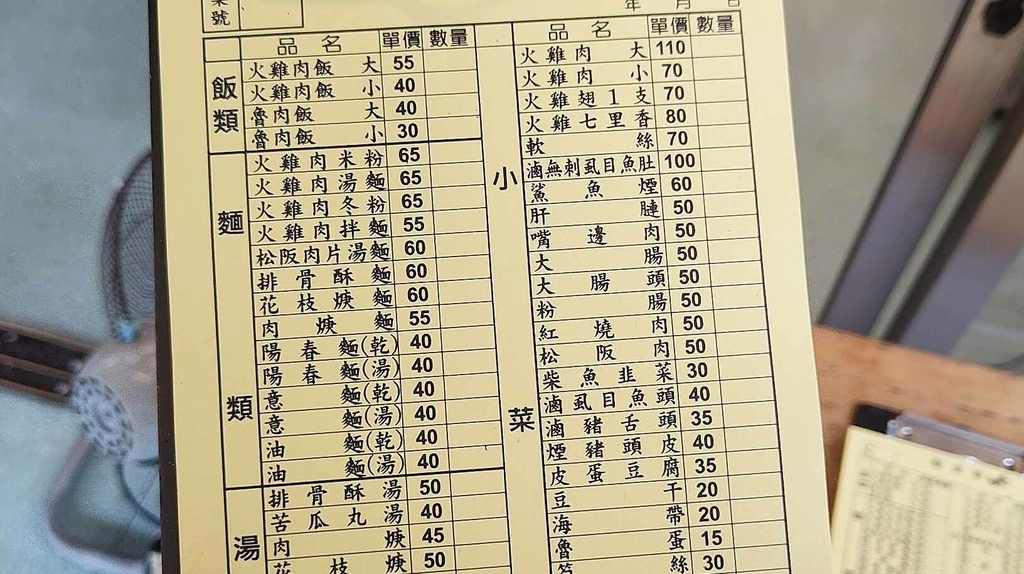 桌號
年 月 日
品名 單價 數量
飯類
火雞肉飯 大 55
火雞肉飯 小 40
魯肉飯 大 40
魯肉飯 小 30
麵類
火雞肉米粉 65
火雞肉湯麵 65
火雞肉冬粉 65
火雞肉拌麵 55
松阪肉片湯麵 60
排骨酥麵 60
花枝焿麵 60
肉焿麵 55
陽春麵(乾) 40
陽春麵(湯) 40
意麵(乾) 40
意麵(湯) 40
油麵(乾) 40
油麵(湯) 40
湯
排骨酥湯 50
苦瓜丸湯 40
肉焿 45
花枝焿 50
品名 單價 數量
小菜
火雞肉 大 110
火雞肉 小 70
火雞翅1支 70
火雞七里香 80
軟絲 70
滷無刺虱目魚肚 100
鯊魚煙 60
肝腱 50
嘴邊肉 50
大腸 50
大腸頭 50
粉腸 50
紅燒肉 50
松阪肉 50
柴魚韭菜 30
滷虱目魚頭 40
滷豬舌頭 35
煙豬頭皮 40
皮蛋豆腐 35
豆干 20
海帶 20
魯蛋 15
筍絲 30